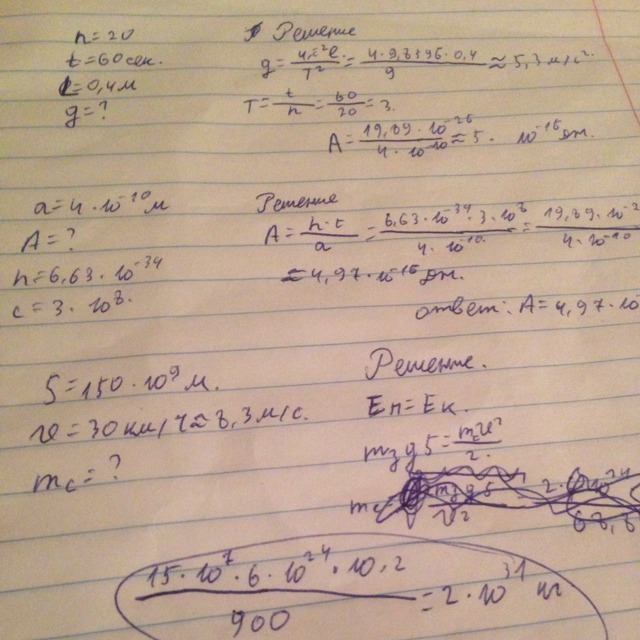 n=20
t=60сек.
l=0,4м
g=?
Решение
g=4π²l/T²=4·9,8596·0,4/9≈5,3 м/с².
T=t/n=60/20=3.
A=19,89·10⁻²⁶/4·10⁻¹⁰≈5·10⁻¹⁶Дж.
a=4·10⁻¹⁰м
A=?
h=6,63·10⁻³⁴
c=3·10⁸.
Решение
A=h·c/a=6,63·10⁻³⁴·3·10⁸/4·10⁻¹⁰=19,89·10⁻²/4·10⁻¹⁰
≈4,97·10⁻¹⁶Дж.
ответ: A=4,97·10
S=150·10⁹м.
v=30км/ч≈8,3м/с.
mc=?
Решение.
Eп=Eк.
mзgS=mcv²/2.
15·10⁷·6·10²⁴·10·2/900=2·10³¹кг